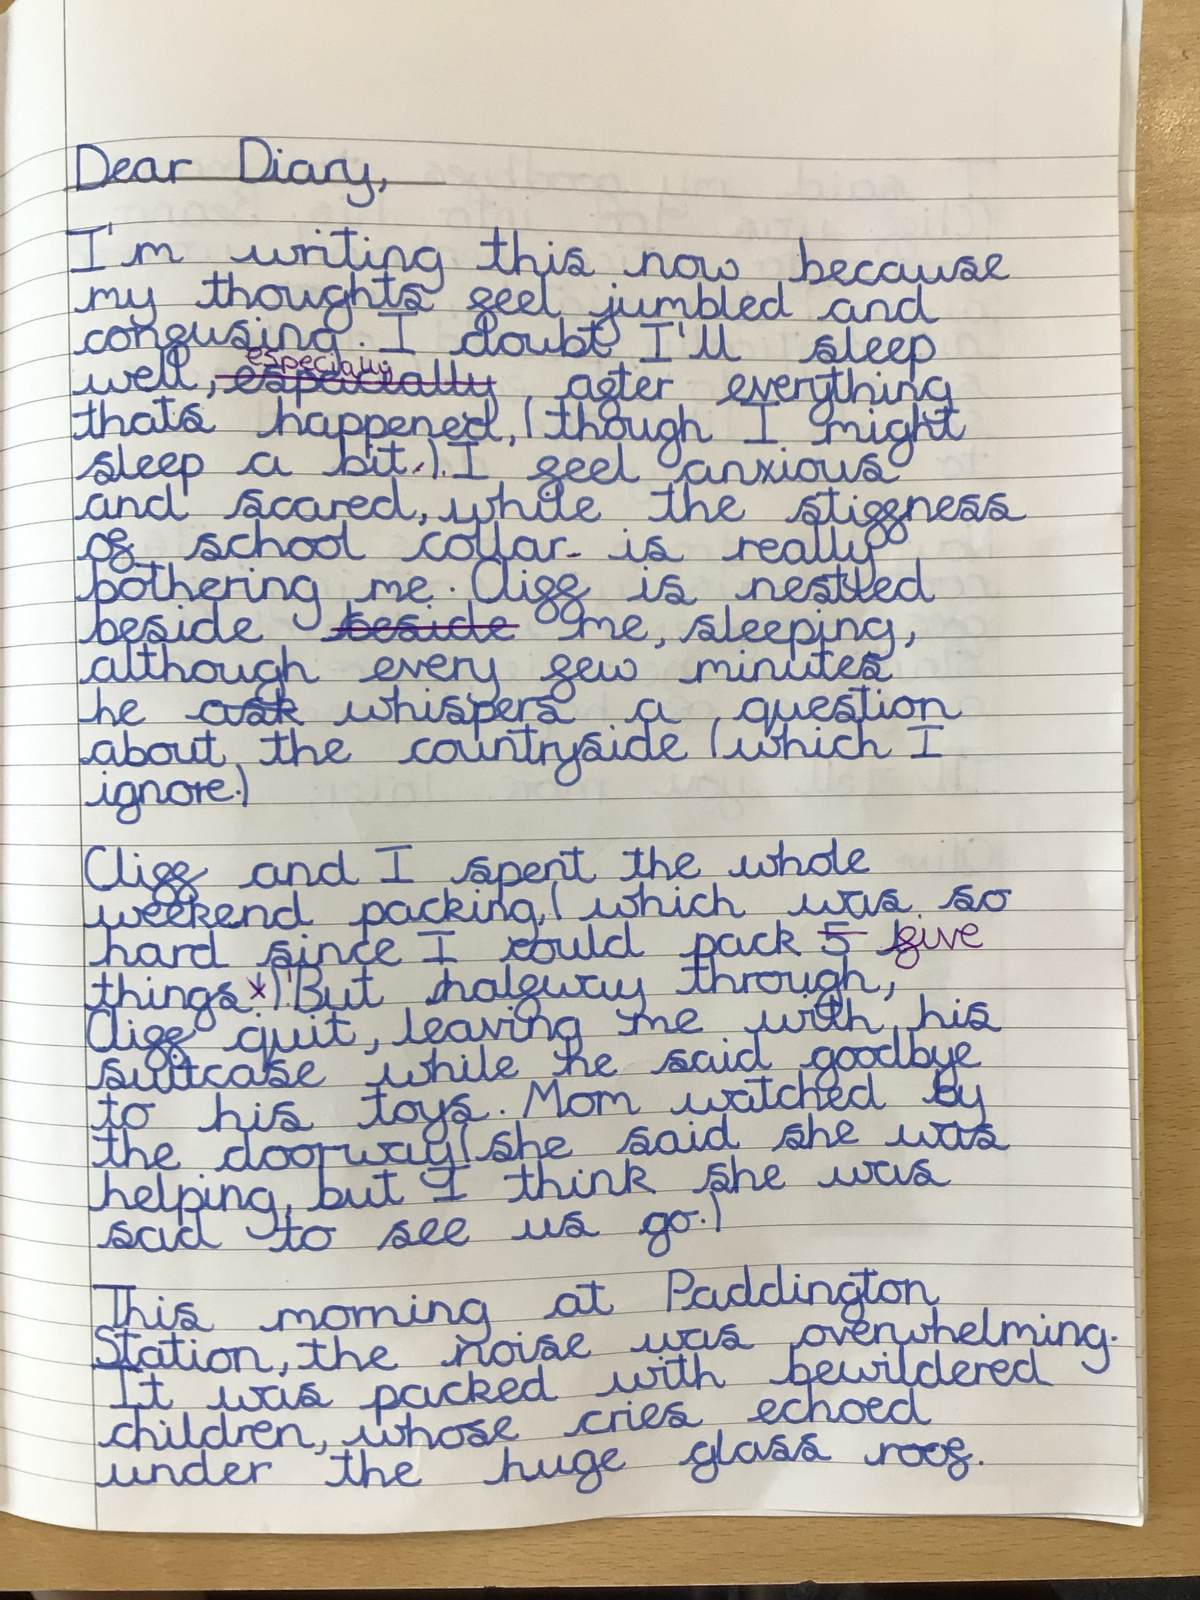 Dear Diary,
I'm writing this now because
my thoughts feel jumbled and
confusing. I doubt I'll sleep
especially
well, especially, after everything
thats happened, (though I might
sleep a bit.). I feel anxious
and scared, while the stiffness
of school collar is really
bothering me. Cliff is nestled
beside beside me, sleeping,
although every few minutes
he ask whispers a question
about the countryside (which I
ignore.)
Cliff and I spent the whole
weekend packing, (which was so
hard since I could pack 5 five
things). But halfway through,
Cliff quit, leaving me with his
suitcase while he said goodbye
to his toys. Mom watched by
the doorway (she said she was
helping, but I think she was
sad to see us go.)
This morning at Paddington
Station, the noise was overwhelming.
It was packed with bewildered
children, whose cries echoed
under the huge glass roof.